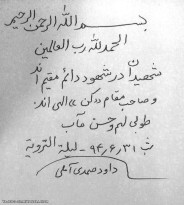 بسم الله الرحمن الرحیم
الحمد لله رب العالمین
شهیدان در شهود دائم مقیم‌اند
و صاحب مقام رکن عالی‌اند؛
طوبی لهم و حسن مآب
۹۴٫۶٫۳۱ - لیلة الترویة
داود صمدی آملی